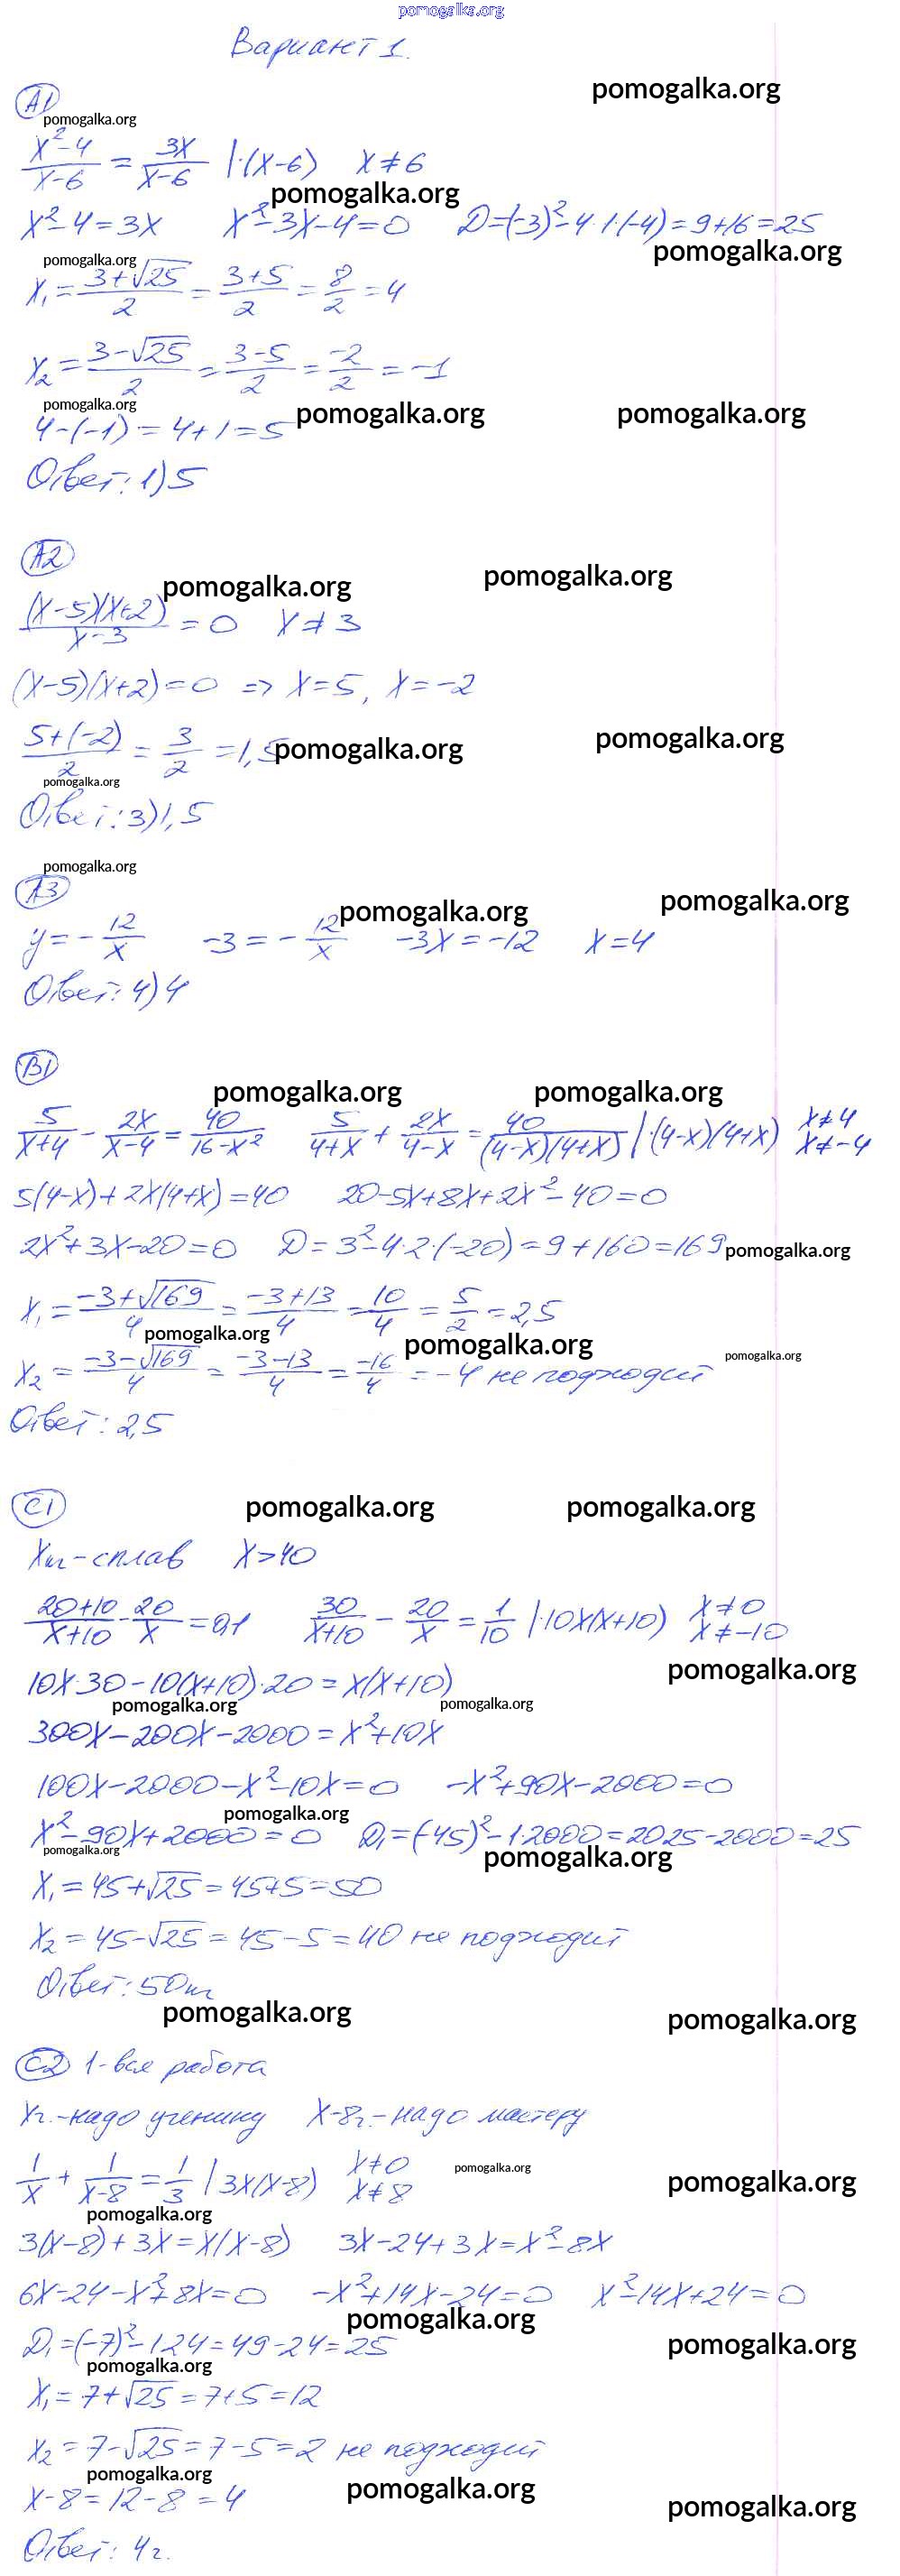 pomogalka.org
Вариант 1.
pomogalka.org
А1
pomogalka.org
x²-4/x-6 = 3x/x-6 |·(x-6) x≠6
pomogalka.org
x²-4=3x x²-3x-4=0 D=(-3)²-4·1·(-4)=9+16=25
pomogalka.org
pomogalka.org
x₁=3+√25/2=3+5/2=8/2=4
x₂=3-√25/2=3-5/2=-2/2=-1
pomogalka.org
pomogalka.org pomogalka.org
4-(-1)=4+1=5
Ответ: 1) 5
А2
pomogalka.org pomogalka.org
(x-5)(x+2)/x-3=0 x≠3
(x-5)(x+2)=0 => x=5, x=-2
5+(-2)/2=3/2=1,5
pomogalka.org pomogalka.org
pomogalka.org
Ответ: 3) 1,5
pomogalka.org
А3
pomogalka.org pomogalka.org
y=-12/x -3=-12/x -3x=-12 x=4
Ответ: 4) 4
В1
pomogalka.org pomogalka.org
5/x+4 - 2x/x-4 = 40/16-x² 5/4+x + 2x/4-x = 40/(4-x)(4+x) |·(4-x)(4+x) x≠4 x≠-4
5(4-x)+2x(4+x)=40 20-5x+8x+2x²-40=0
2x²+3x-20=0 D=3²-4·2·(-20)=9+160=169
pomogalka.org
x₁=-3+√169/4=-3+13/4=10/4=5/2=2,5
pomogalka.org pomogalka.org pomogalka.org
x₂=-3-√169/4=-3-13/4=-16/4=-4 не подходит
Ответ: 2,5
С1
pomogalka.org pomogalka.org
Xт-сплав x>40
20+10/x+10-20/x=0,1 30/x+10 - 20/x = 1/10 |·10x(x+10) x≠0 x≠-10
pomogalka.org
10x·30-10(x+10)·20=x(x+10)
pomogalka.org pomogalka.org
300x-200x-2000=x²+10x
100x-2000-x²-10x=0 -x²+90x-2000=0
pomogalka.org
x²-90x+2000=0 D₁=(-45)²-1·2000=2025-2000=25
pomogalka.org pomogalka.org
x₁=45+√25=45+5=50
x₂=45-√25=45-5=40 не подходит
Ответ: 50т
pomogalka.org pomogalka.org
С2 1-вся работа
xч.-надо ученику x-8ч.-надо мастеру
1/x + 1/x-8 = 1/3 | 3x(x-8) x≠0 x≠8
pomogalka.org
pomogalka.org
pomogalka.org
3(x-8)+3x=x(x-8) 3x-24+3x=x²-8x
6x-24-x²+8x=0 -x²+14x-24=0 x²-14x+24=0
pomogalka.org
D₁=(-7)²-1·24=49-24=25
pomogalka.org
pomogalka.org
x₁=7+√25=7+5=12
x₂=7-√25=7-5=2 не подходит
pomogalka.org pomogalka.org
x-8=12-8=4
pomogalka.org
Ответ: 4ч.